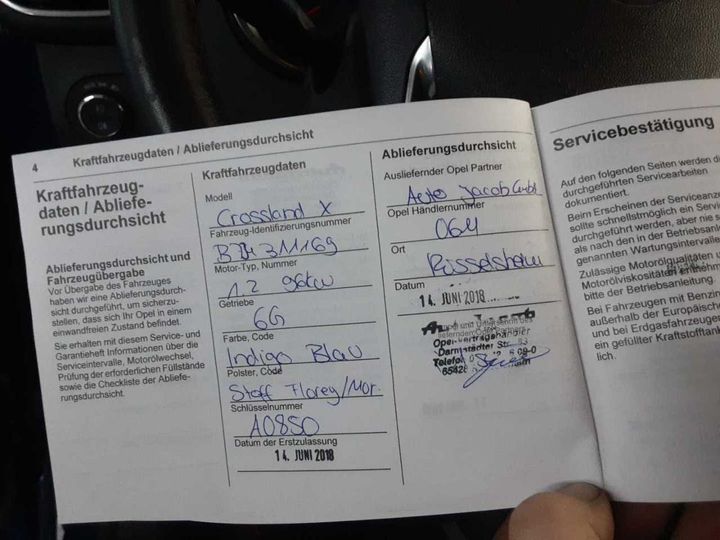 4 Kraftfahrzeugdaten / Ablieferungsdurchsicht
Kraftfahrzeug-
daten / Abliefe-
rungsdurchsicht
Ablieferungsdurchsicht und
Fahrzeugübergabe
Vor Übergabe des Fahrzeuges
haben wir eine Ablieferungsdurch-
sicht durchgeführt, um sicherzu-
stellen, dass sich Ihr Opel in einem
einwandfreien Zustand befindet.
Sie erhalten mit diesem Service- und
Garantieheft Informationen über die
Serviceintervalle, Motorölwechsel,
Prüfung der erforderlichen Füllstände
sowie die Checkliste der Abliefe-
rungsdurchsicht.
Kraftfahrzeugdaten
Modell
Crossland X
Fahrzeug-Identifizierungsnummer
311169
Motor-Typ, Nummer
1.2 96kw
Getriebe
6G
Farbe, Code
Indigo Blau
Polster, Code
Stoff Florey/Mor.
Schlüsselnummer
A0850
Datum der Erstzulassung
14. JUNI 2018
Ablieferungsdurchsicht
Ausliefernder Opel Partner
Auto Jacob GmbH
Opel Händlernummer
064
Ort
Rüsselsheim
Datum
14. JUNI 2018
Opel-Vertragshändler
Darmstädter Str.
Telefon
Servicebestätigung
Auf den folgenden Seiten werden di
durchgeführten Servicearbeiten
dokumentiert.
Beim Erscheinen der Serviceanz
sollte schnellstmöglich ein Serv
durchgeführt werden, aber nie s
als nach den in der Betriebsanl
genannten Wartungsintervalle
Zulässige Motorölqualitäten u
Motorölviskositäten entnehm
bitte der Betriebsanleitung.
Bei Fahrzeugen mit Benzin
außerhalb der Europäisch
und bei Erdgasfahrzeugen
ein gefüllter Kraftstofftank
lich.